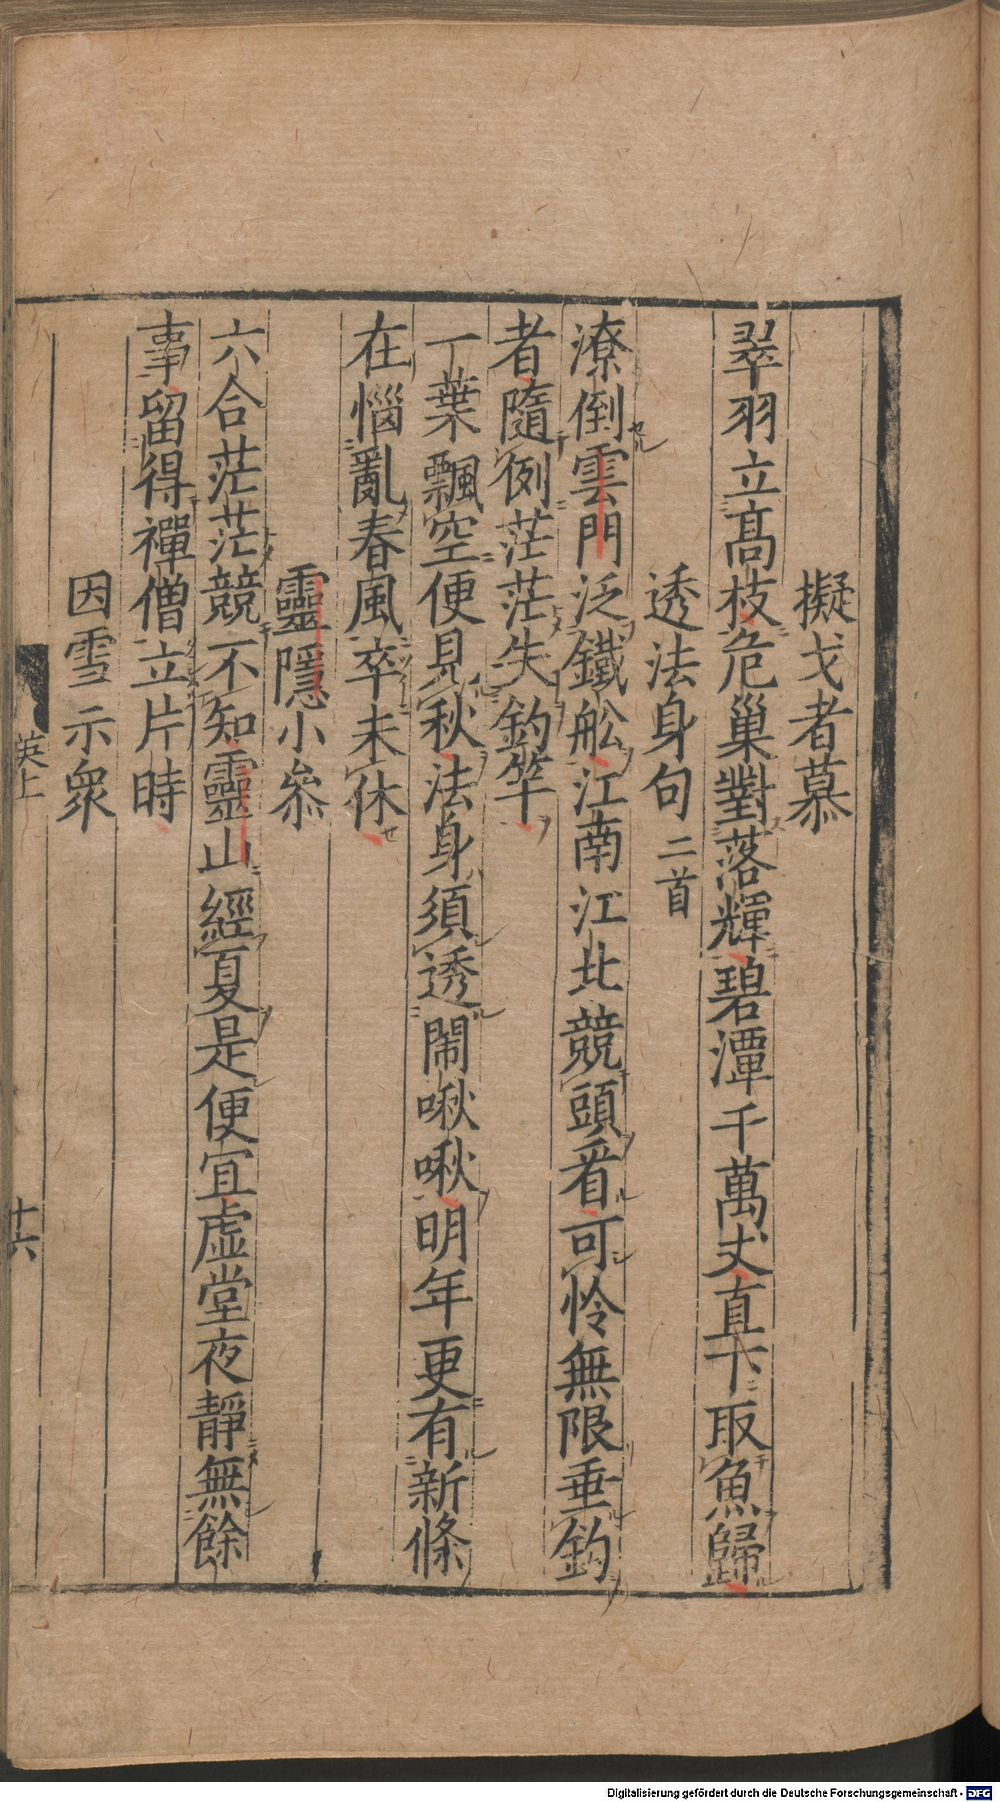 擬弋者慕
翠羽立髙枝危巢對落輝碧潭千萬丈直下取魚歸
透法身句二首
潦倒雲門泛鐵舩江南江北競頭看可怜無限垂釣
者隨例茫茫失釣竿
一葉飄空便見秋法身須透閙啾啾明年更有新條
在惱亂春風卒未休
靈隱小叅
六合茫茫競不知靈山經夏是便宜虚堂夜靜無餘
事留得禪僧立片時
因雪示衆
英上
十六
Digitalisierung gefördert durch die Deutsche Forschungsgemeinschaft - DFG